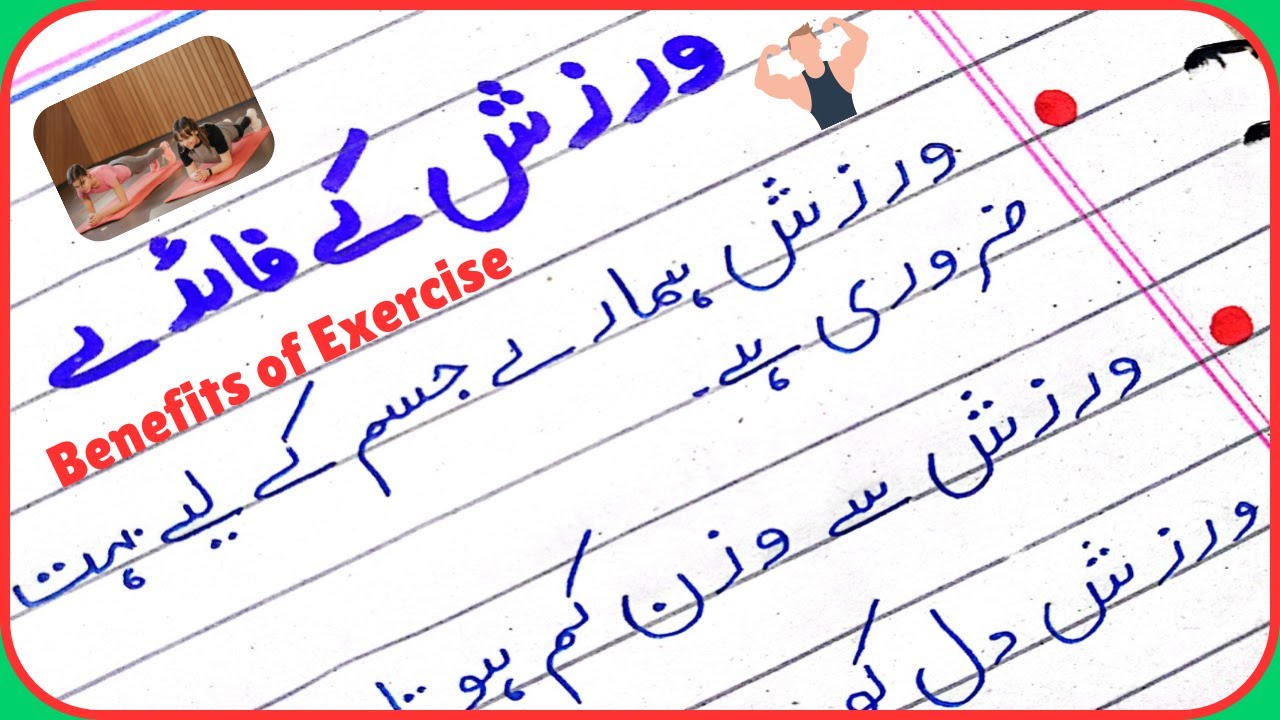 ورزش کے فائدے
Benefits of Exercise
ورزش ہمارے جسم کے لیے بہت
ضروری ہے۔
ورزش سے وزن کم ہوتا
ورزش دل کو